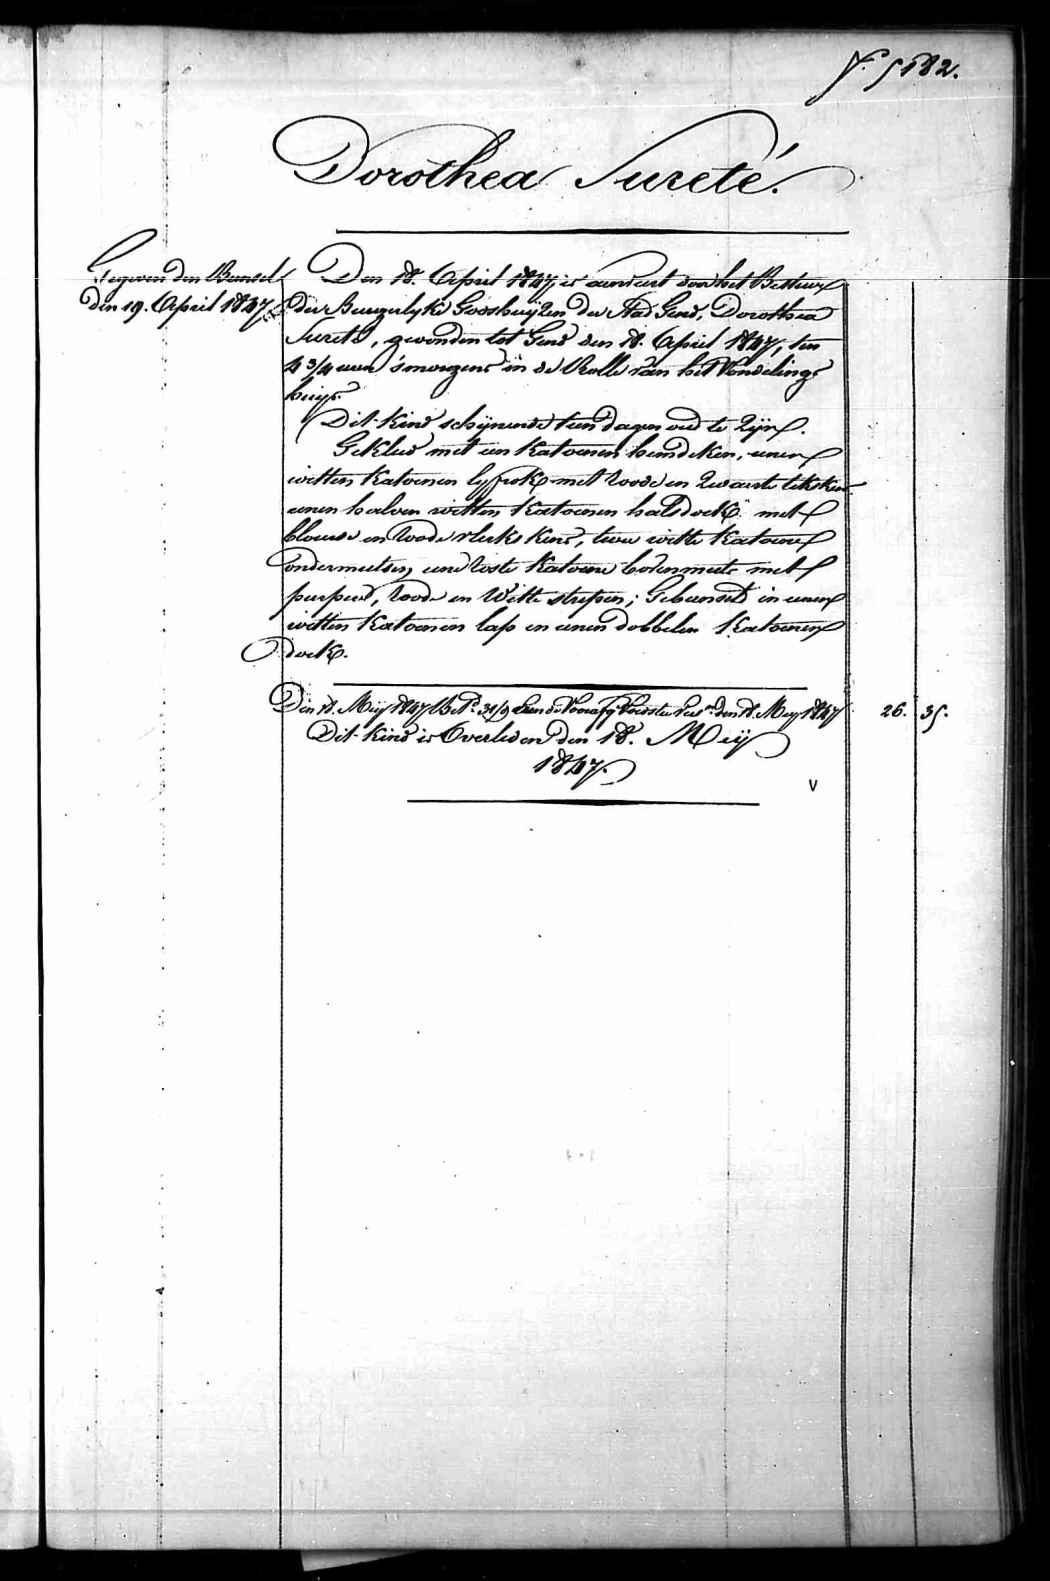 f.° 5182.
Dorothea Sureté.
Gegeven den Bunsel
den 19. April 1847
Den 18. April 1847, is aenveirt door het Bestier
der Burgerlyke Godshuijzen der Stad Gend, Dorothea
Sureté, gevonden tot Gend den 18. April 1847, ten
4 3/4 uren s'morgens in de Rolle van het Vondelings
huijs.
Dit Kind schijnende tien dagen oud te Zijn.
Gekleed met een Katoenen hemdeken, eenen
witten Katoenen lyfrok met roode en Zwarte
eenen halven witten Katoenen halsdoek met
blauwe en roode vlekskens, twee witte Katoene
ondermutsen, eene roste Katoene bovenmuts met
purpere, roode en Witte strepen; Gebunseld in eenen
witten Katoenen lap en eenen dobbelen Katoenen
doek.
Den 18. Meij 1847 31/9 den 18. Meij 1847 26. 35.
Dit Kind is Overleden den 18. Meij
1847.
v